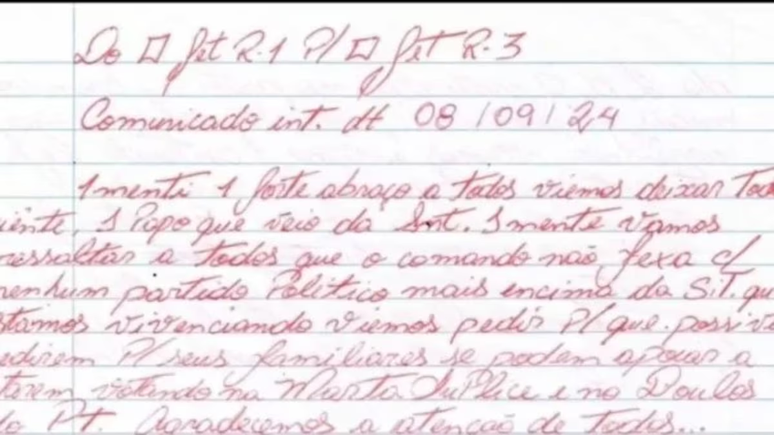 Do □ Jet R-1 P/ □ Jet R-3
Comunicado int. dt 08/09/24
1menti 1 forte abraço a todos viemos deixar Tod
iente, 1 Papo que veio da Snt. 1mente vamos
ressaltar a todos que o comando não fexa c/
nenhum partido Politico mais encima da S.T. qu
stamos vivenciando viemos pedir P/ que possive
edirem P/ seus familiares se podem apoiar a
terem votando na Marta SuPlice e no Boulos
do Pt. Agradecemos a atencão de Todos...